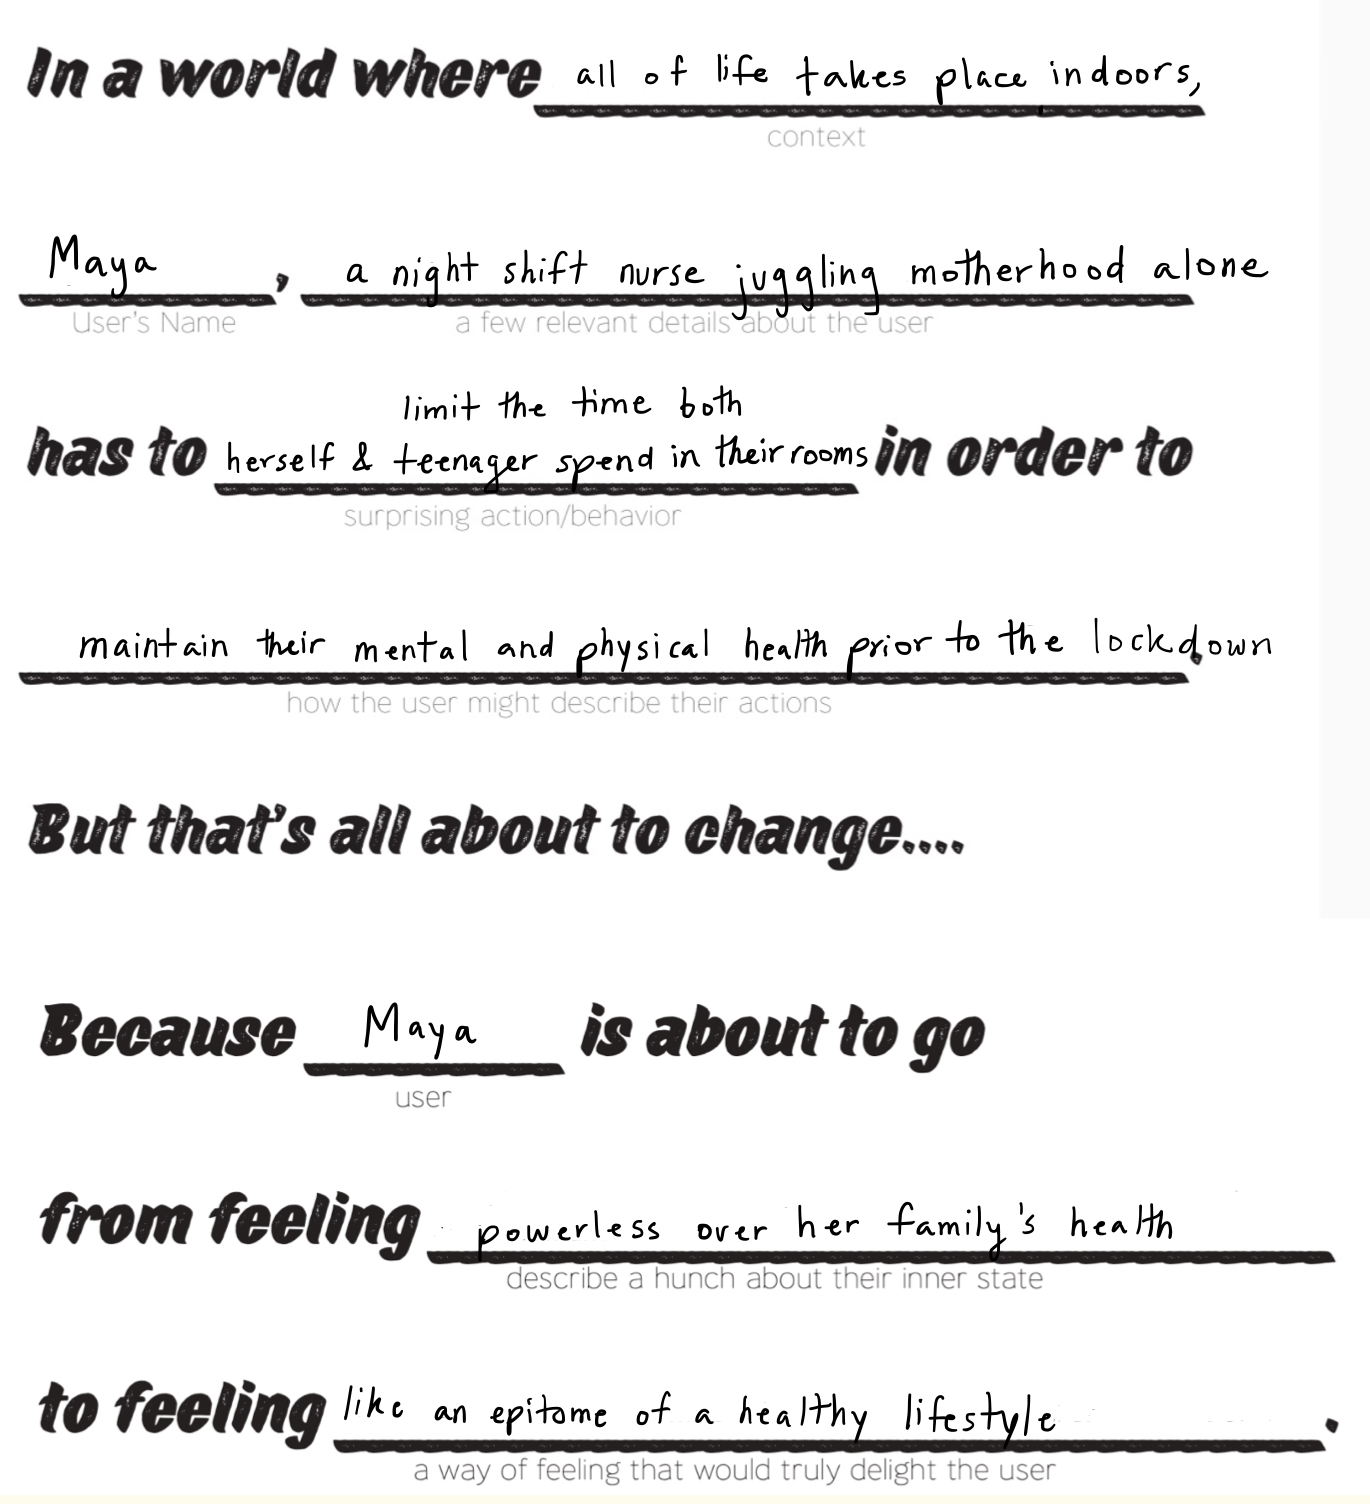 In a world where all of life takes place indoors,
context
Maya, a night shift nurse juggling motherhood alone
User's Name a few relevant details about the user
limit the time both
has to herself & teenager spend in their rooms in order to
surprising action/behavior
maintain their mental and physical health prior to the lockdown.
how the user might describe their actions
But that's all about to change....
Because Maya is about to go
user
from feeling powerless over her family's health
describe a hunch about their inner state
to feeling like an epitome of a healthy lifestyle.
a way of feeling that would truly delight the user